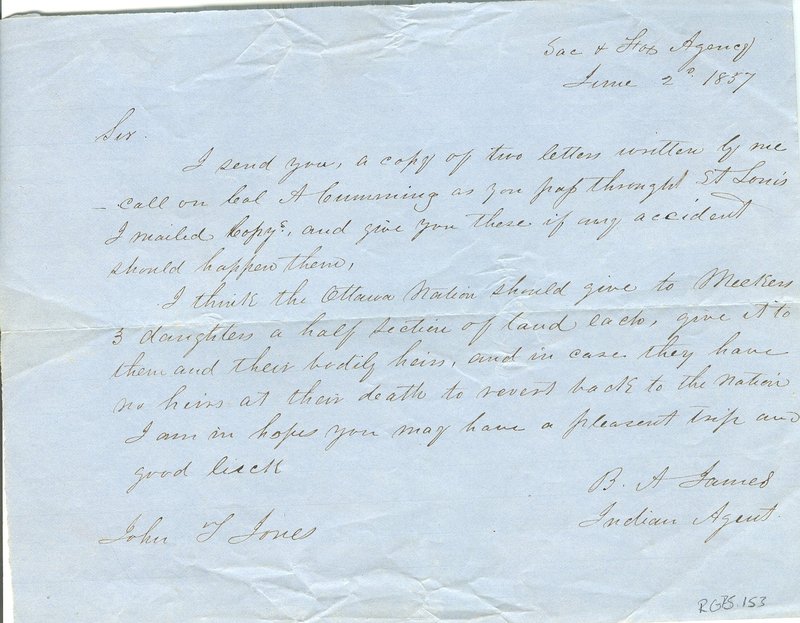 Sac & Fox Agency
June 2ᵈ 1857
Sir.
I send you, a copy of two letters written by me
call on Col A Cumming as you pass throught St Louis
I mailed Copys, and give you these if any accident
should happen them,
I think the Ottawa Nation should give to Meekers
3 daughters a half section of land each, give it to
them and their bodily heirs, and in case they have
no heirs at their death to revert back to the Nation
I am in hopes you may have a pleasent trip and
good luck
B. A James
Indian Agent.
John T Jones
RGPS.153